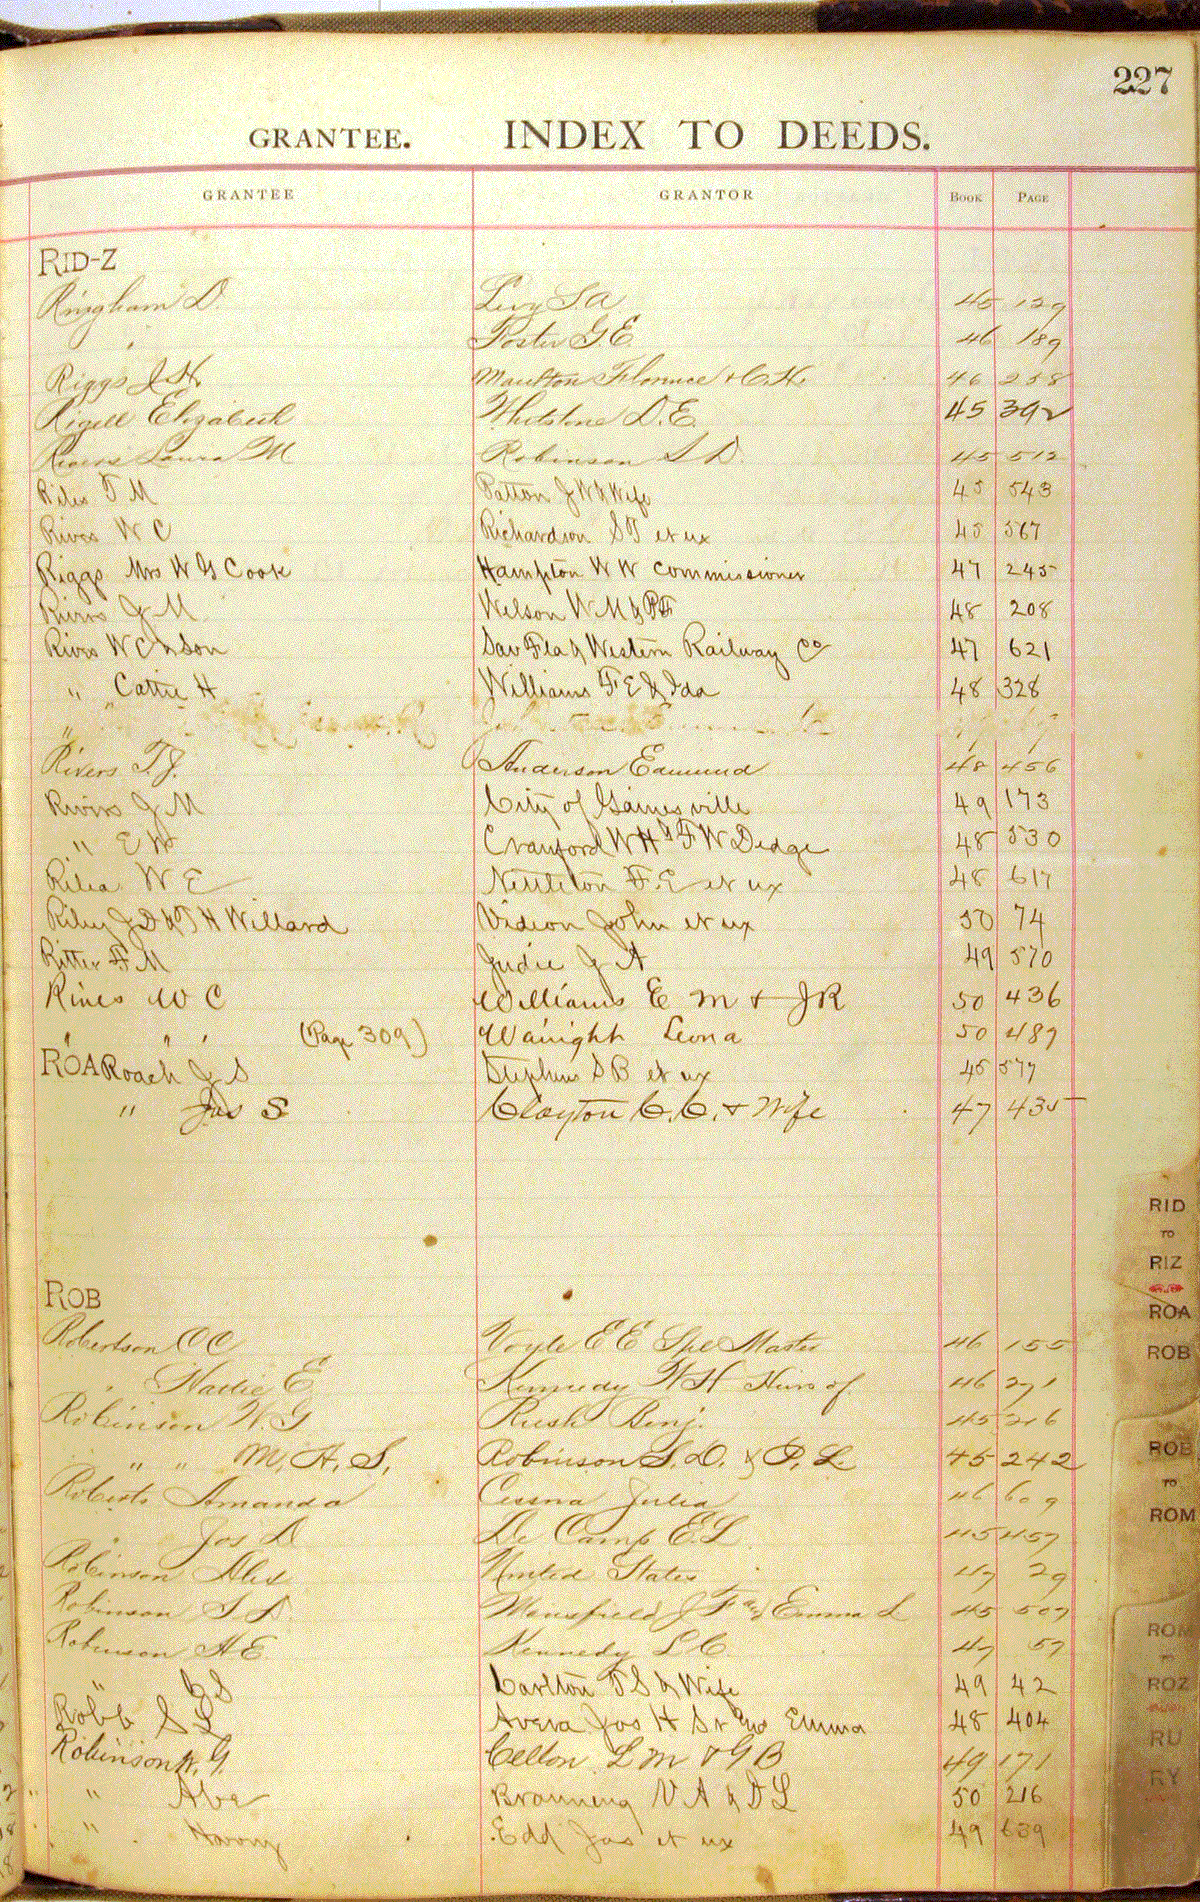 227
GRANTEE. INDEX TO DEEDS.
GRANTEE GRANTOR BOOK PAGE
RID-Z
Ringham D. Levy S A 45 129
" Foster G E 46 189
Riggs J. H. Moulton Florence & C. H. 46 258
Rigell Elizabeth Whetstone D. E. 45 392
Laura M Robinson S D. 45 512
Riles T M Patton J W & Wife 45 543
Rivers W C Richardson S T et ux 45 567
Riggs Mrs W G Cook Hampton W W Commissioner 47 245
Rivers J M Wilson W M & 48 208
Rivers W C & Son Sav Fla & Western Railway Co 47 621
" Cattie H Williams F E & Ida 48 328
"
Rivers T. J. Anderson Edmund 48 456
Rivers J M City of Gainesville 49 173
" E W Cranford W H & F W Dedge 48 530
Rilea W E Nettleton F. E et ux 48 617
Riley J D & T H Willard Videon John et ux 50 74
Ritter F M Judie J A 49 570
Rines W C Williams E M & J R 50 436
" " " (Page 309) Wainright Leona 50 487
ROA Roach J S Stephens S B et ux 45 577
" Jas S Clayton C. C. & Wife 47 435
ROB
Robertson O C Voyle E E Spl Master 46 155
" Hattie E Kennedy W H Heirs of 46 271
Robinson W. G Rush Benj. 45 216
" " M. H. S. Robinson S. D. & I. L. 45 242
Roberts Amanda Cessna Julia 46 609
" Jos D De Camp E. L. 45 457
Robinson Alex United States 47 29
Robinson S D. Mansfield J F and Emma L 45 507
Robinson H E. Kennedy L C. 47 57
" C S Carlton T S & Wife 49 42
Robb S L Avera Jas H Sr and Emma 48 404
Robinson W. G. Cellon L M & G B 49 171
" " Abe Branning V A & D L 50 216
" " Harry Edd Jas et ux 49 639
RID
TO
RIZ
ROA
ROB
ROB
TO
ROM
ROM
TO
ROZ
RU
RY